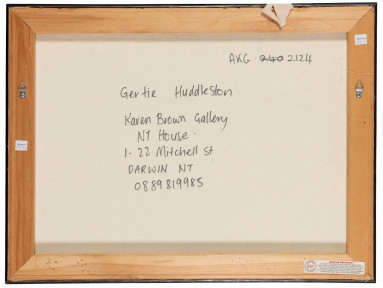 AKG 2124
Gertie Huddleston
Karen Brown Gallery
NT House.
1-22 Mitchell St
DARWIN NT
0889819985